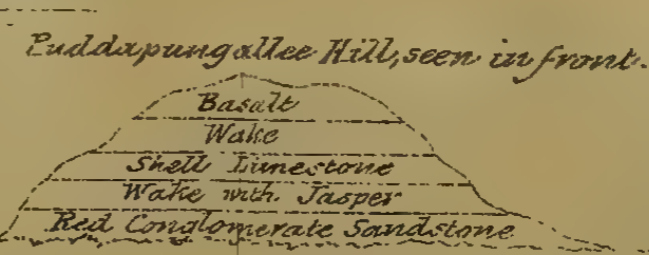 Puddapungallee Hill, seen in front.
Basalt
Wake
Shell Limestone
Wake with Jasper
Red Conglomerate Sandstone